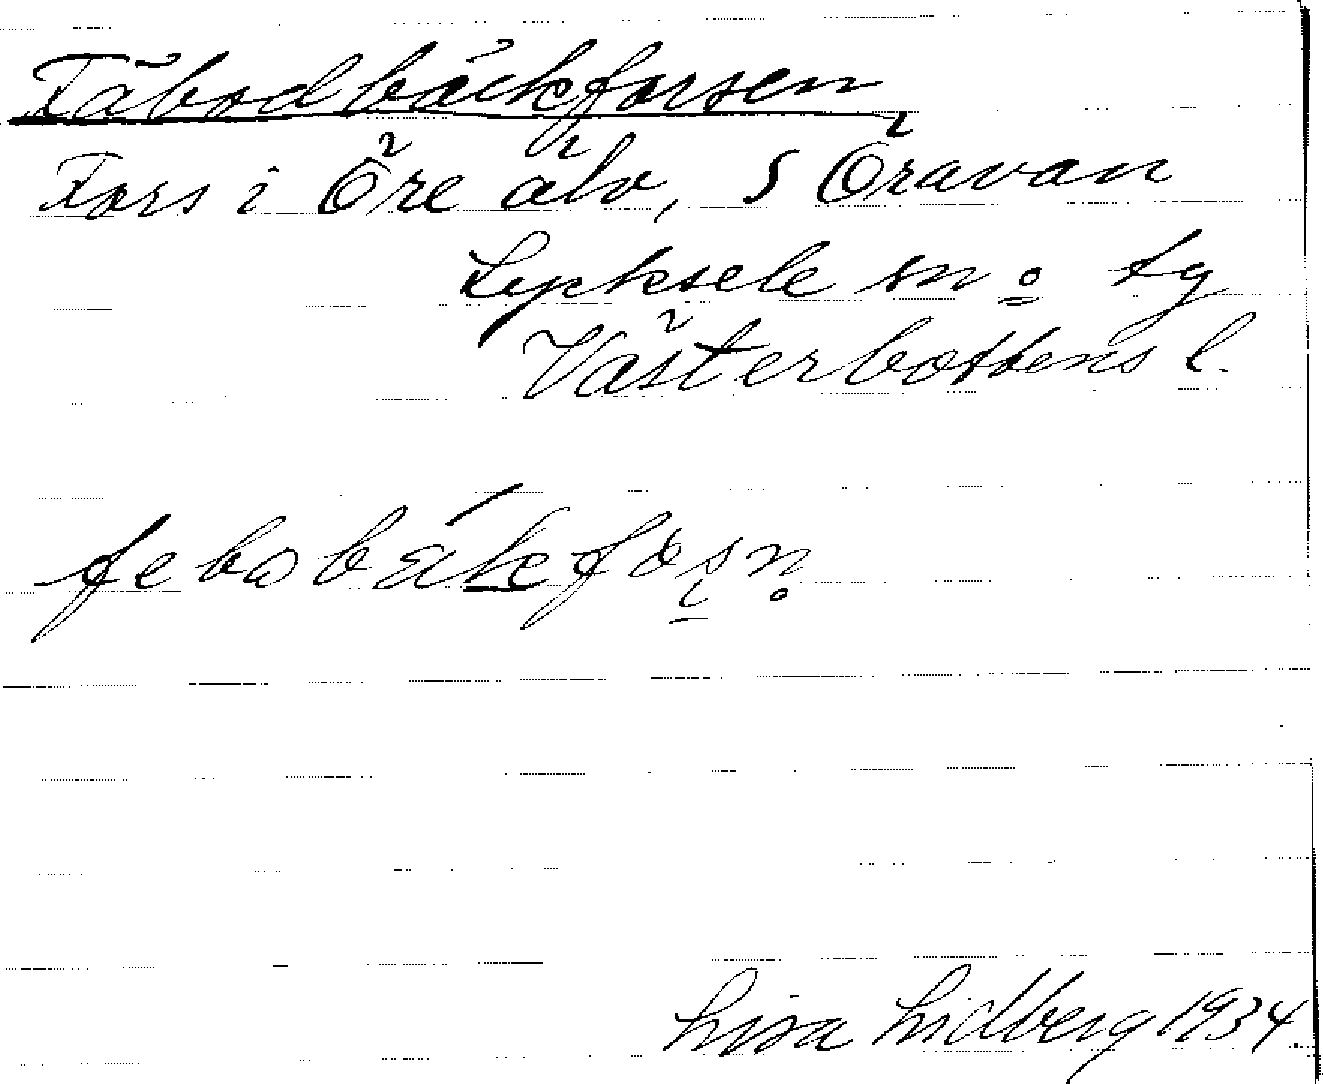 Fäbodbäckforsen
Fors i Öre älv, S Öravan
Lycksele sn o. lg
Västerbottens l.
febobäkfosn
Lisa Lidberg 1934.